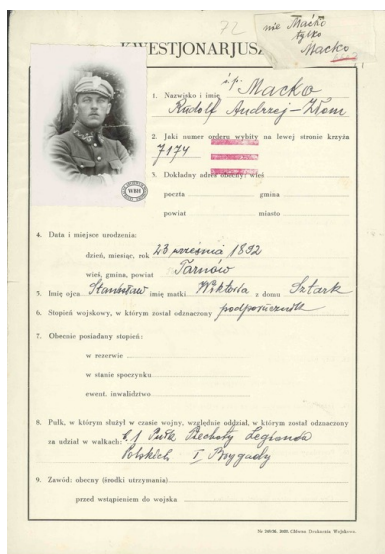 72
nie Maćko
tylko
Macko
KWESTJONARJUSZ
1. Nazwisko i imię ś.p. Macko
Rudolf Andrzej-Złom
2. Jaki numer orderu wybity na lewej stronie krzyża
7174
3. Dokładny adres obecny: wieś
poczta gmina
powiat miasto
WBH
4. Data i miejsce urodzenia:
dzień, miesiąc, rok 23 września 1892
wieś, gmina, powiat Tarnów
5. Imię ojca Stanisław imię matki Wiktoria z domu Sztark
6. Stopień wojskowy, w którym został odznaczony podporucznik
7. Obecnie posiadany stopień:
w rezerwie
w stanie spoczynku
ewent. inwalidztwo
8. Pułk, w którym służył w czasie wojny, względnie oddział, w którym został odznaczony
za udział w walkach: 1 Pułk Piechoty Legionów
Polskich I Brygady
9. Zawód: obecny (środki utrzymania)
przed wstąpieniem do wojska
Główna Drukarnia Wojskowa.